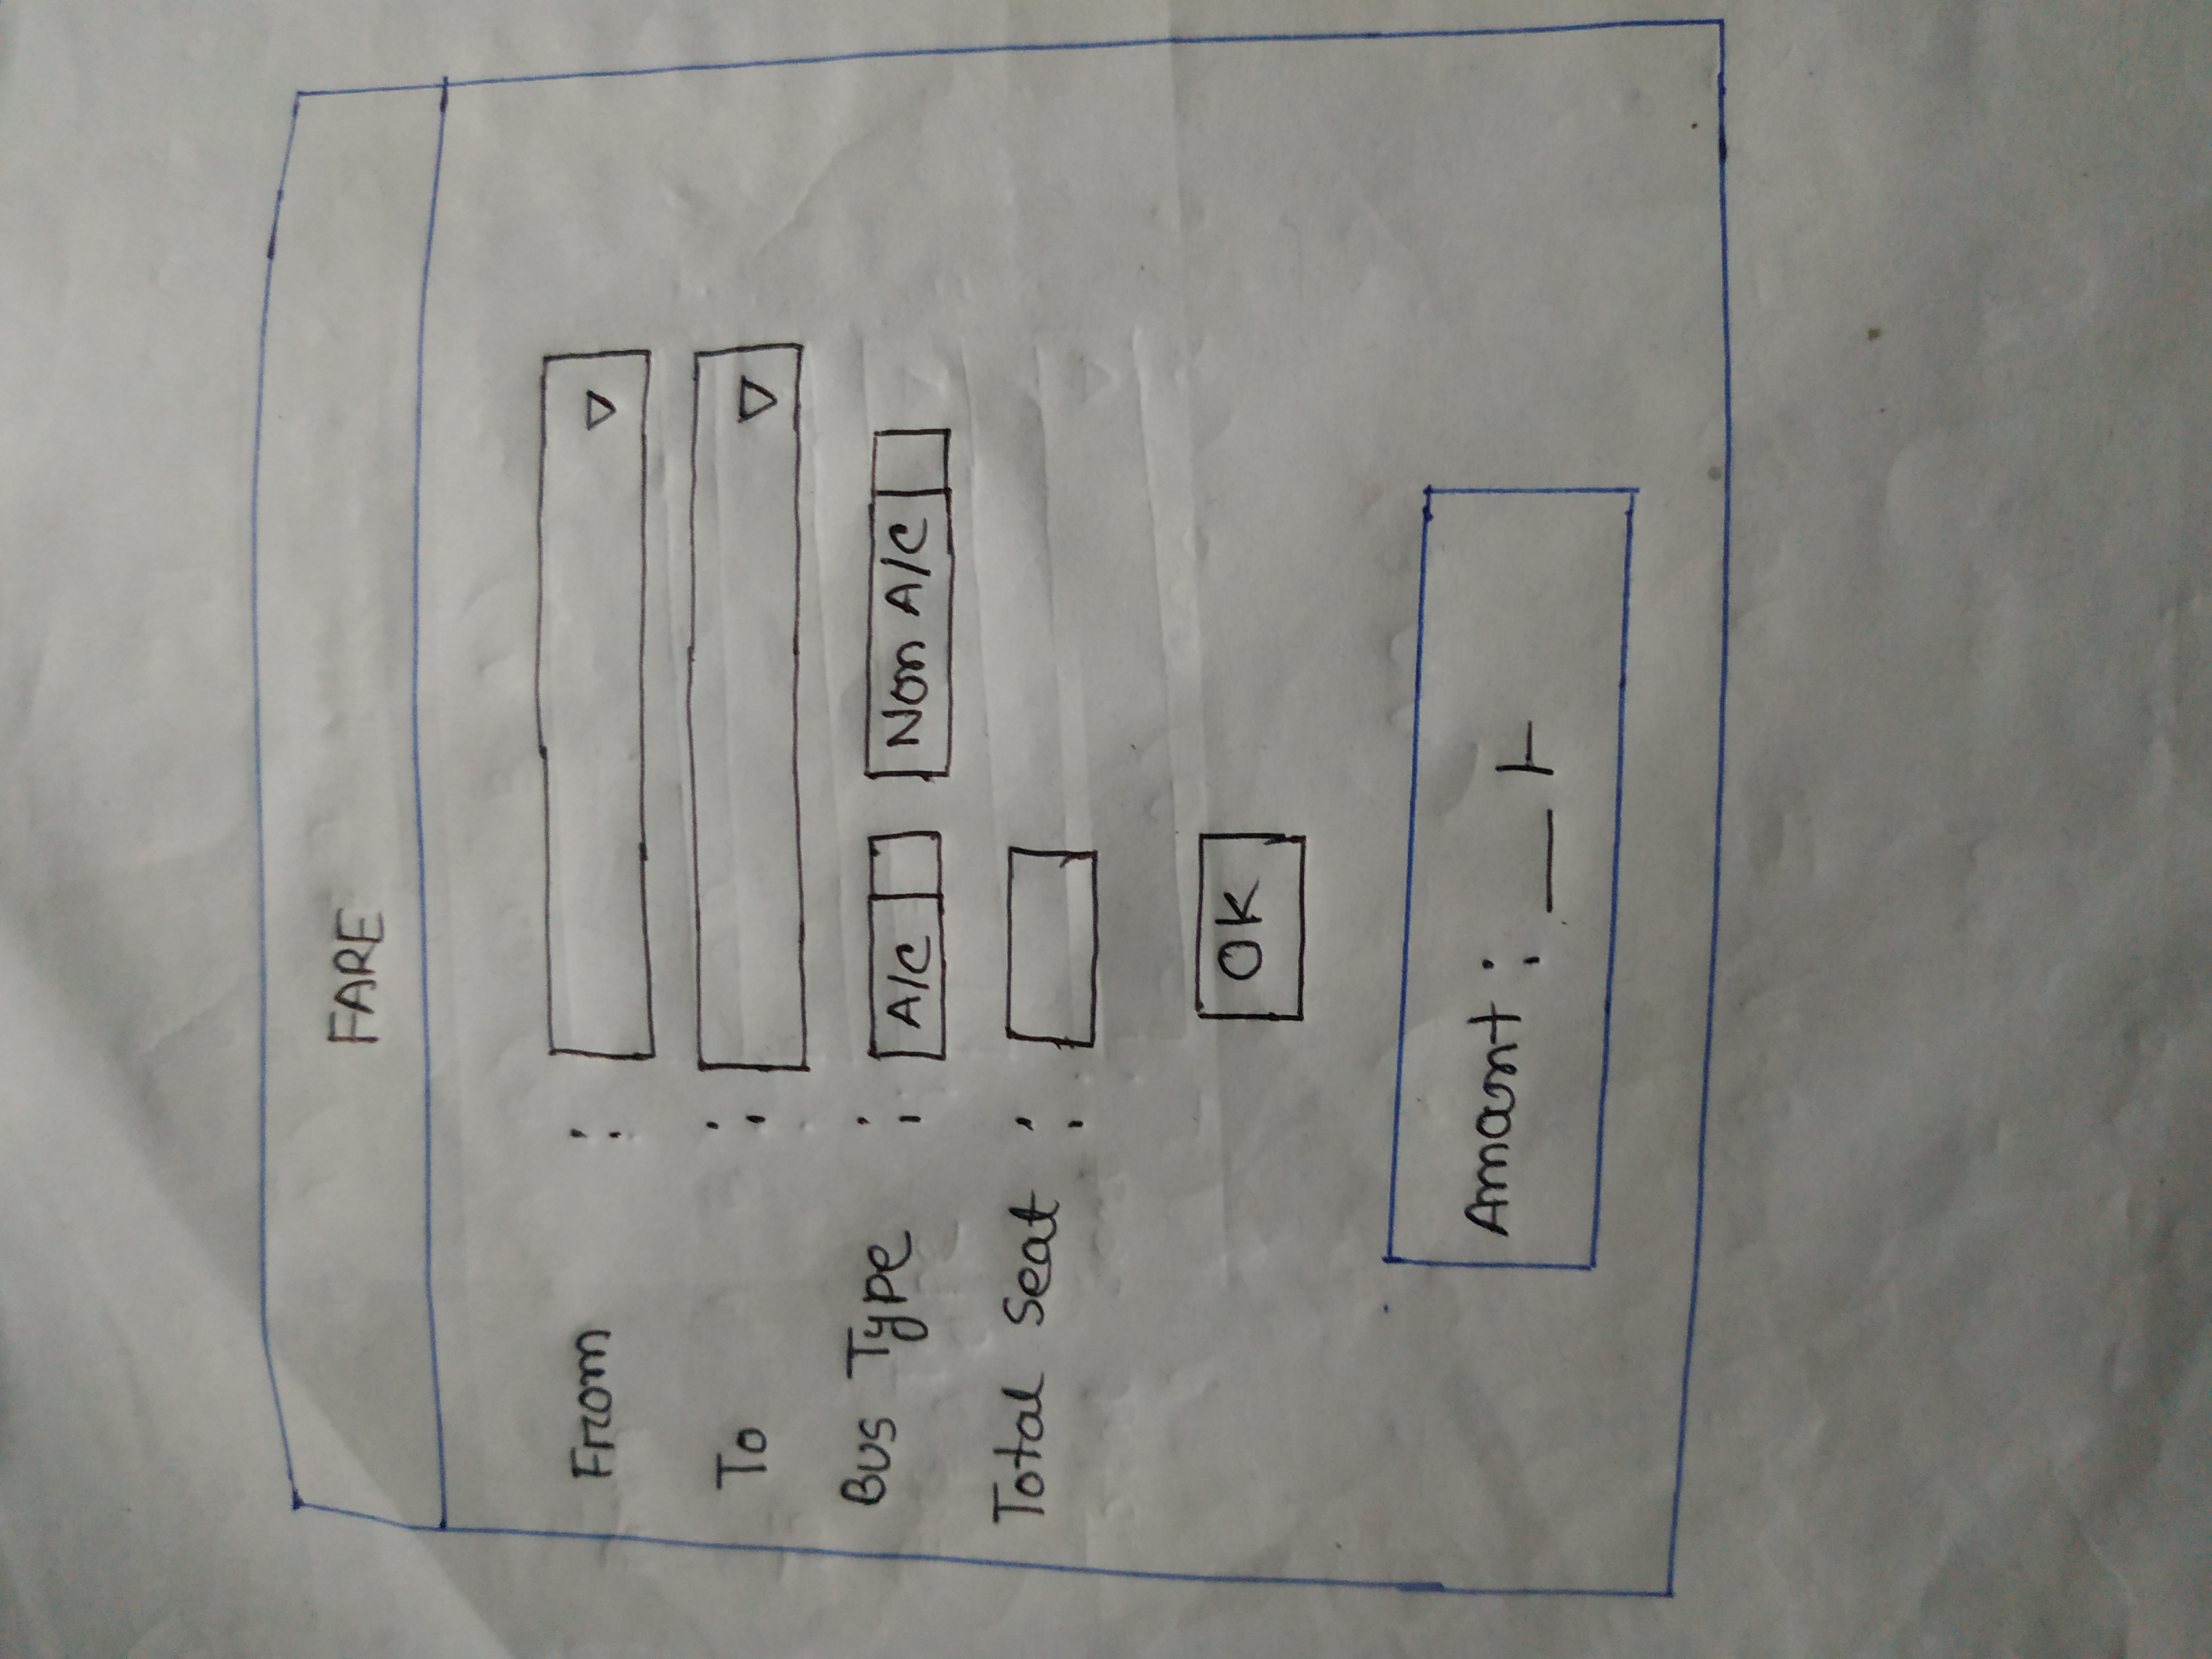 FARE
From :
To :
Bus Type : A/C Non A/C
Total Seat :
OK
Amount : __